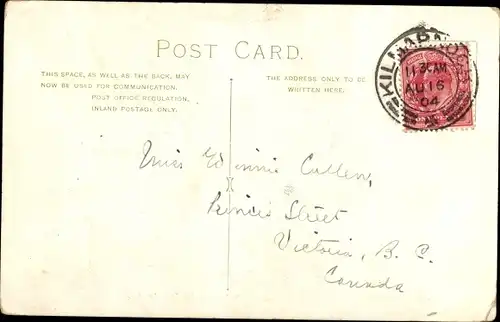 POST CARD.
THIS SPACE, AS WELL AS THE BACK, MAY
NOW BE USED FOR COMMUNICATION.
POST OFFICE REGULATION,
INLAND POSTAGE ONLY.
THE ADDRESS ONLY TO BE
WRITTEN HERE.
KILMARNOCK
AU 16
04
Miss Cullen,
Street
Victoria, B. C.
Canada